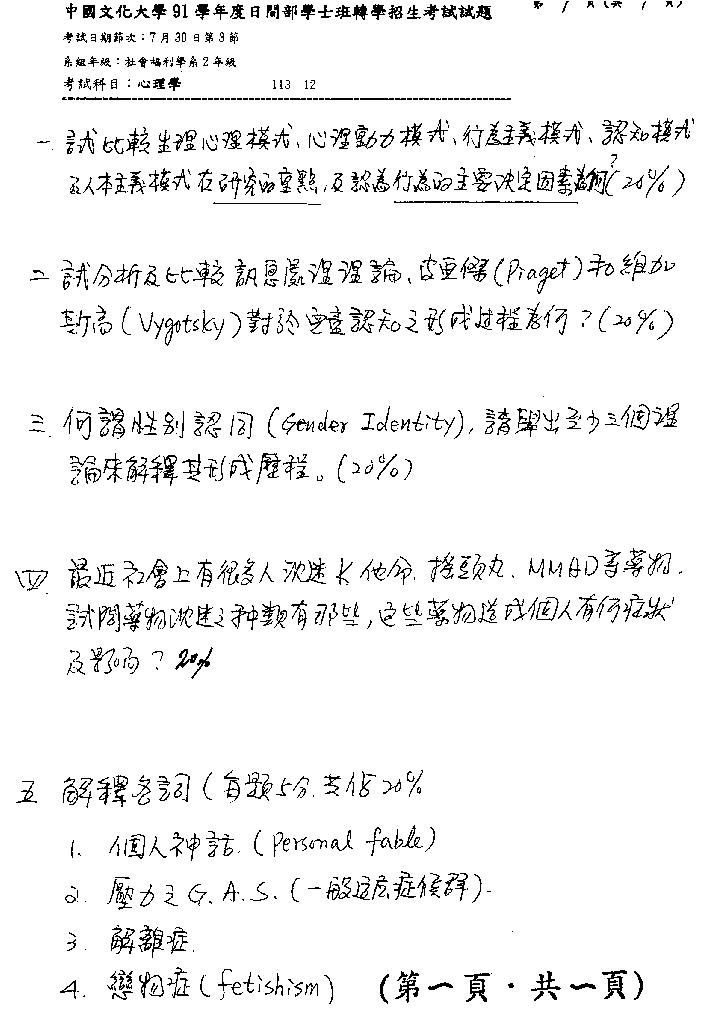 第 / 頁(共 / 頁)
中國文化大學91學年度日間部學士班轉學招生考試試題
考試日期節次：7月30日第3節
系組年級：社會福利學系2年級
考試科目：心理學 113 12
一. 試比較生理心理模式、心理動力模式、行為主義模式、認知模式
及人本主義模式在研究的重點,及認為行為的主要決定因素為何?(20%)
二. 試分析及比較訊息處理理論、皮亞傑(Piaget)和維加
斯高(Vygotsky)對於兒童認知之形成过程為何？(20%)
三. 何謂性別認同(Gender Identity),請舉出至少三個理
論來解釋其形成歷程。(20%)
四. 最近社會上有很多人沈迷K他命、搖頭丸、MMAD等藥物.
試問藥物沈迷之种類有那些,這些藥物造成個人有何症狀
及影响？20%
五 解釋名詞(每題5分.共佔20%
1. 個人神話.(Personal fable)
2. 壓力之G.A.S.(一般适应症候群).
3. 解離症.
4. 戀物症(fetishism)
(第一頁．共一頁)